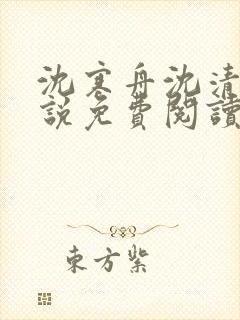 沈寒舟沈清
說免費閱讀
東方紫